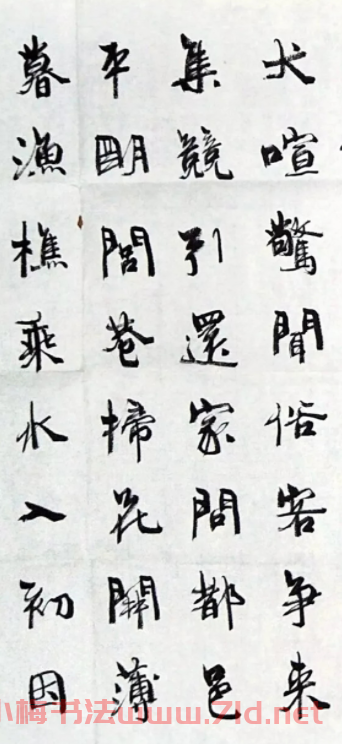 犬喧驚聞俗客争来
集競引還家問都邑
平明閭巷掃花開薄
暮漁樵乘水入初因
小梅书法www.7ld.net